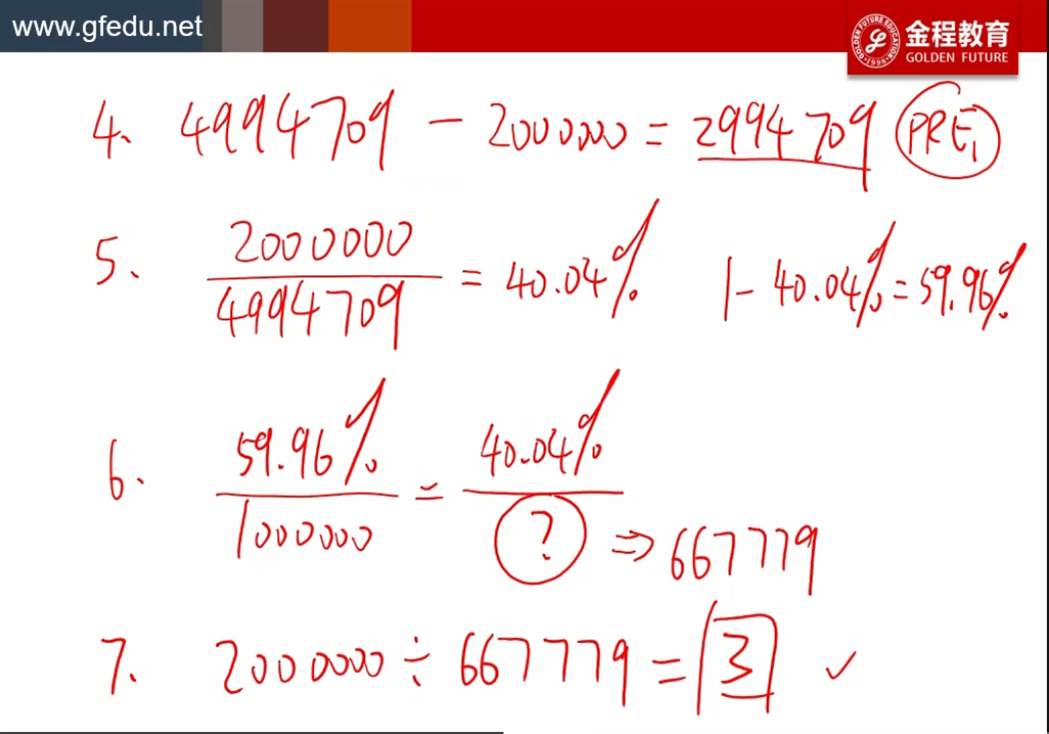 www.gfedu.net
GOLDEN FUTURE EDUCATION
1998
金程教育
GOLDEN FUTURE
4、 4994709 - 2000000 = 2994709 PRE₁
5、 2000000 / 4994709 = 40.04% 1 - 40.04% = 59.96%
6. 59.96% / 1000000 = 40.04% / ? ⇒ 667779
7. 2000000 ÷ 667779 = 3 ✓